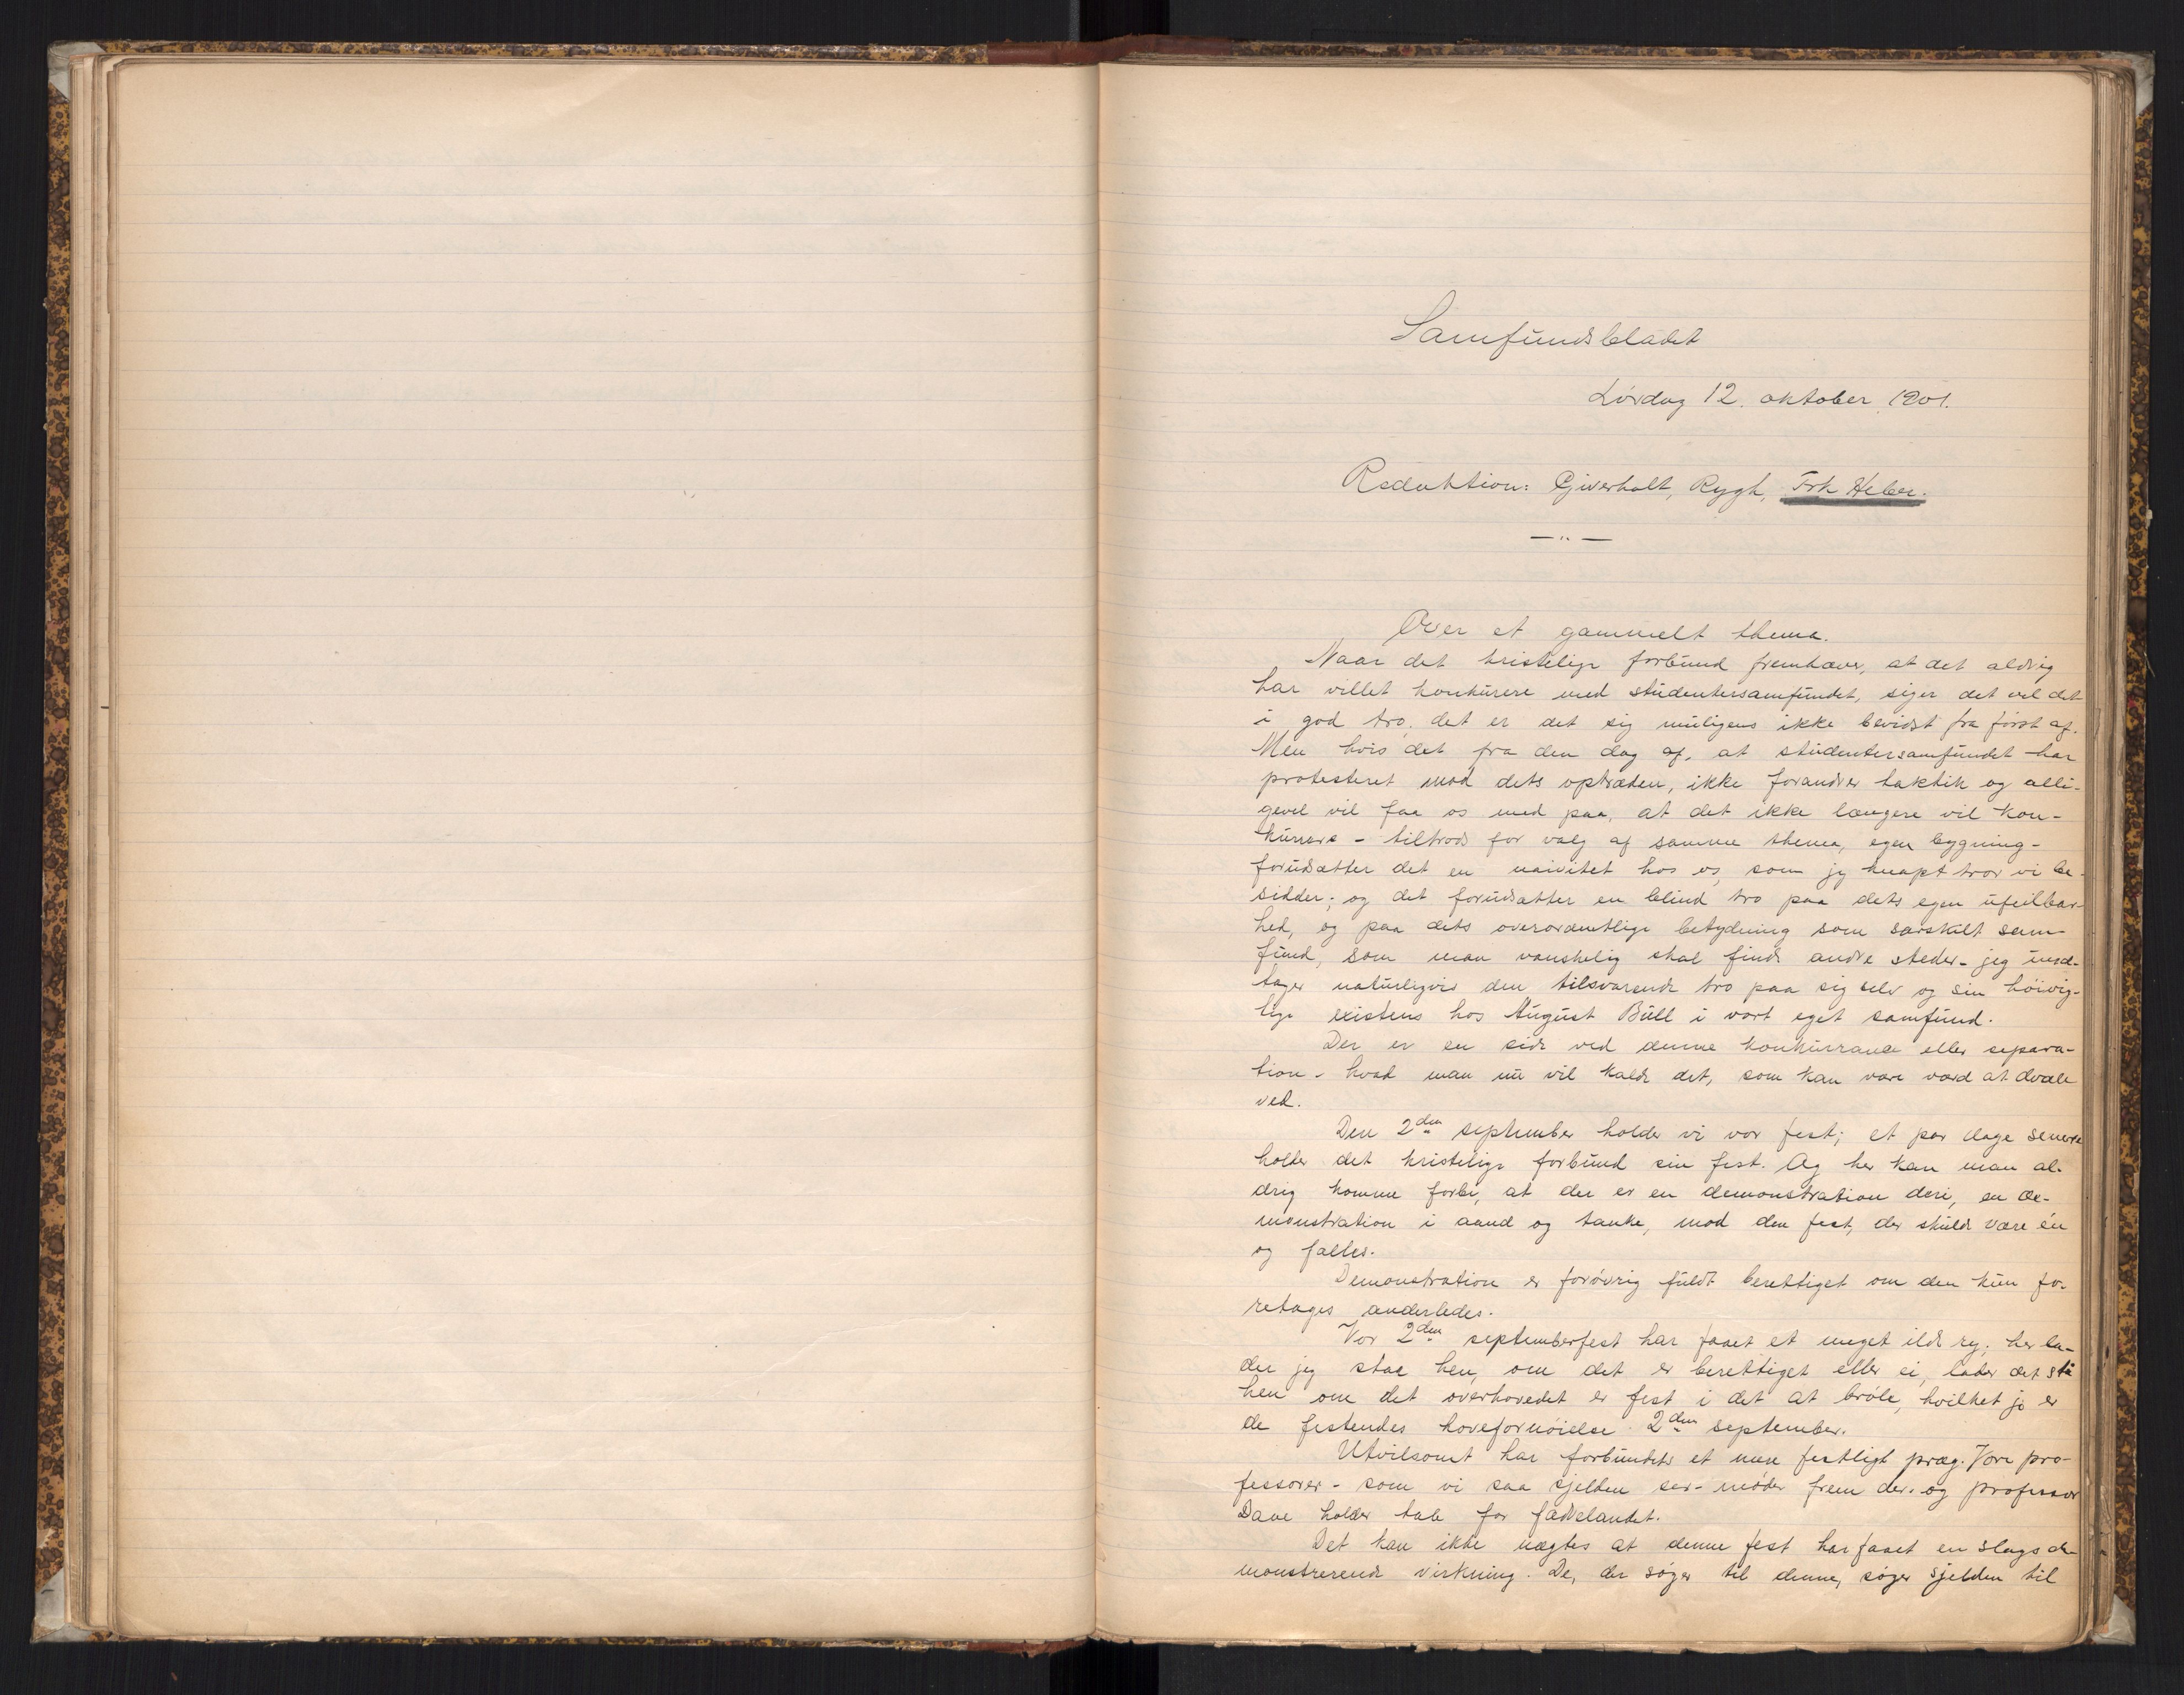 Samfundsbladet
Lördag 12. oktober 1901.
Redaktion: Gjverholt, Rygh, Frk Heber.
Over et gammelt thema.
Naar det kristelige forbund fremhæver, at det aldrig
har villet konkurere med studentersamfundet, siger det vel det
i god tro, det er det sig muligens ikke bevidst fra först af.
Men hvis det fra den dag af, at studentersamfundet har
protesteret mod dets optræden, ikke forandrer taktik og alli-
gevel vil faa os med paa, at det ikke længere vil kon-
kurrere - tiltrods for valg af samme thema, egen bygning -
forudsætter det en naivitet hos os, som jeg knapt tror vi be-
sidder; og det forudsætter en blind tro paa dets egen ufeilbar-
hed, og paa dets overordentlige betydning som særskilt sam-
fund, som man vanskelig skal finde andre steder - jeg und-
tager naturligvis den tilsvarende tro paa sig selv og sin höivig-
tige existens hos August Bull i vort eget samfund.
Der er en side ved denne konkurrance eller separa-
tion - hvad man nu vil kalde det, som kan være værd at dvæle
ved.
Den 2den september holder vi vor fest; et par dage senere
holder det kristelige forbund sin fest. Og her kan man al-
drig komme forbi, at der er en demonstration deri, en de-
monstration i aand og tanke, mod den fest, der skulde være én
og fælles.
Demonstration er forövrig fuldt berettiget om den kun fo-
retages anderledes.
Vor 2den septemberfest har faaet et meget ilde ry; her la-
der jeg staa hen, om det er berettiget eller ei, lader det stå
hen om det overhovedet er fest i det at bröle, hvilket jo er
de festendes hovefornöielse 2den september.
Utvilsomt har forbundets et mere festligt præg. Vore pro-
fessorer - som vi saa sjelden ser - möder frem der. og professor
Daae holder tale for fædrelandet.
Det kan ikke nægtes at denne fest har faaet en slags de-
monstrerende virkning. De, der söger til denne, söger sjelden til